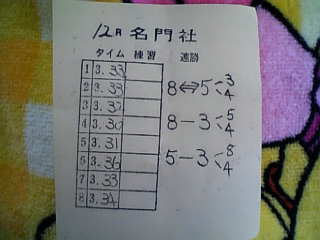 12月 名門社
タイム 練習 連勝
1 3.33
2 3.33
3 3.32
4 3.30
5 3.31
6 3.36
7 3.33
8 3.34
8⇔5<3 4
8-3<5 4
5-3<8 4